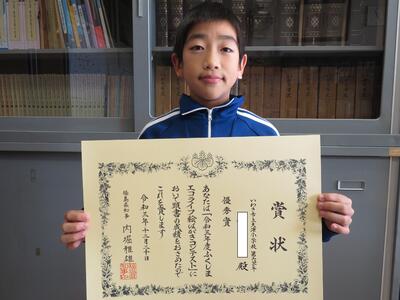 賞状
いわき市立大浦小学校 第六学年
優秀賞
殿
あなたは「令和三年度ふくしま
エコライフ絵はがきコンテスト」に
おいて頭書の成績をおさめたので
これを賞します
令和三年十二月二十日
福島県知事 内堀雅雄